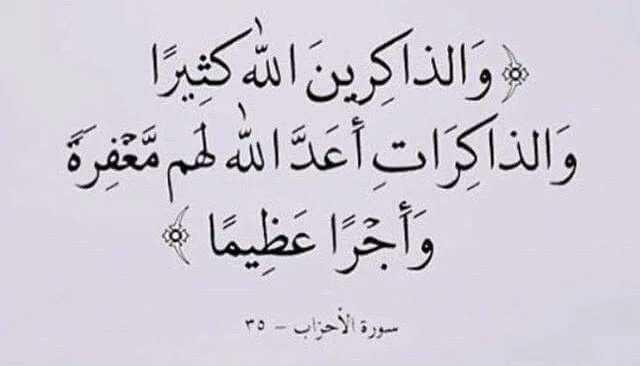 ﴿ وَالذاكِرِينَ اللّٰه كَثِيرًا
وَالذاكِرَاتِ أَعَدَّ اللّٰه لَهم مَّغْفِرَةً
وَأَجْرًا عَظِيمًا ﴾
سورة الأحزاب - ٣٥